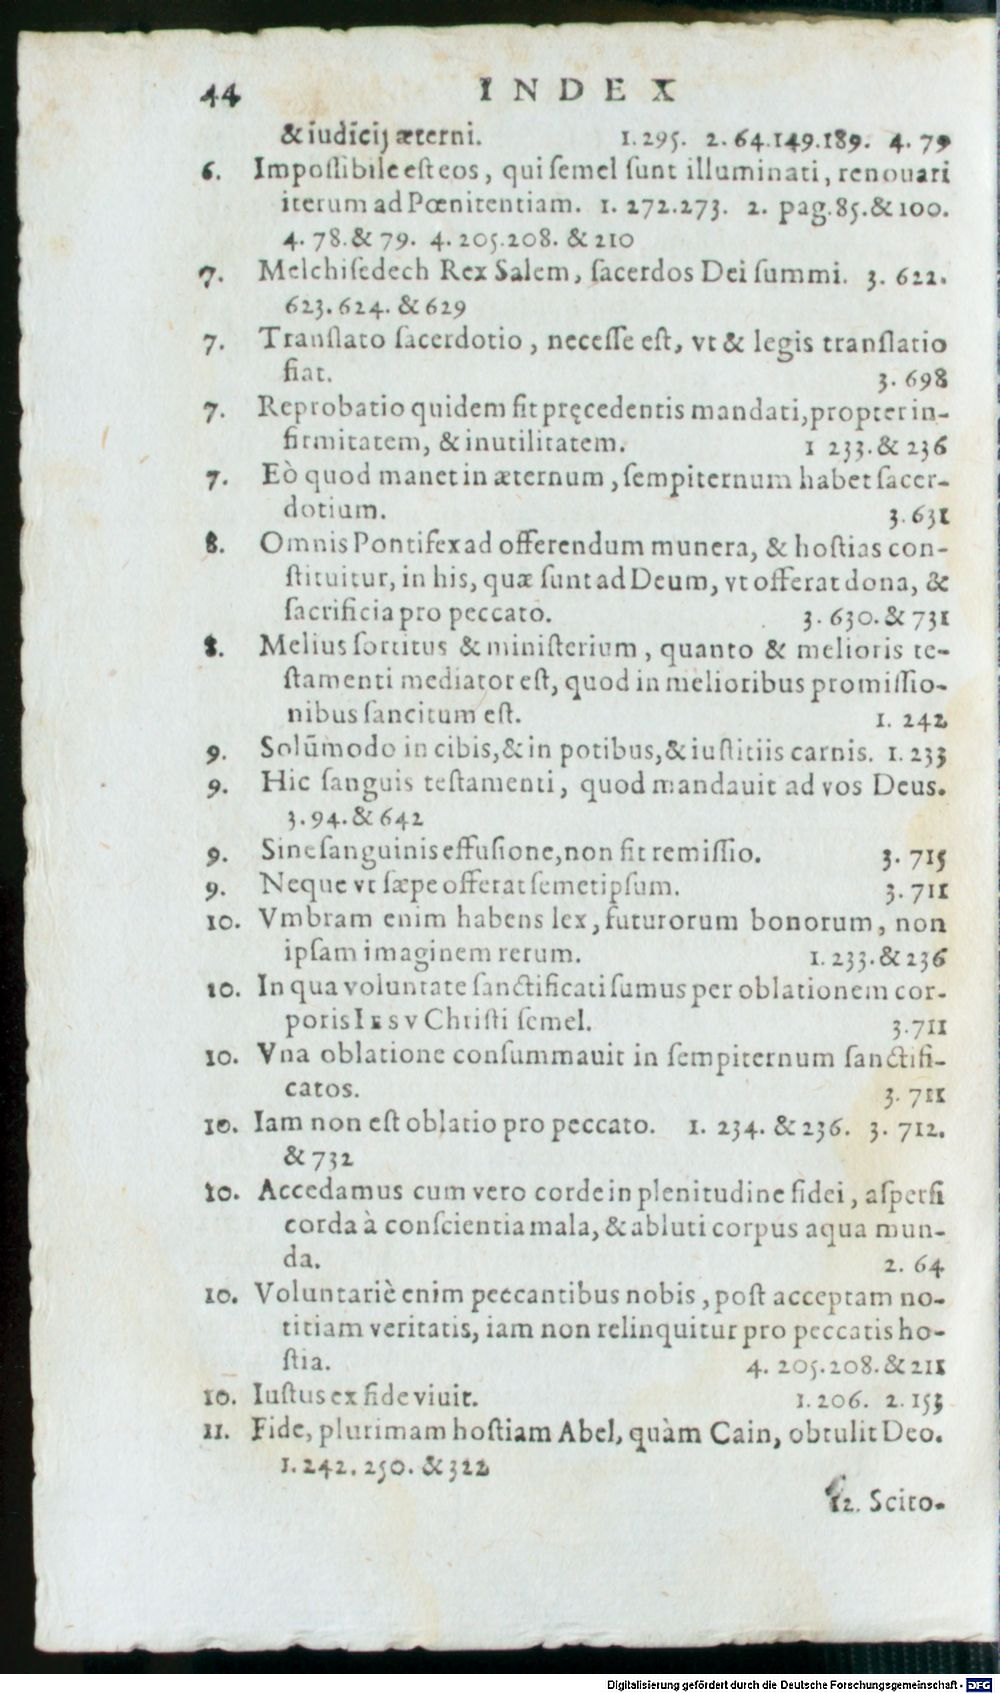 44 INDEX
& iudicij æterni. 1. 295. 2. 64.149.189. 4. 79
6. Impoſſibile eſt eos, qui ſemel ſunt illuminati, renouari
iterum ad Pœnitentiam. 1. 272.273. 2. pag.85.& 100.
4. 78.& 79. 4. 205.208. & 210
7. Melchiſedech Rex Salem, ſacerdos Dei ſummi. 3. 622.
623.624. & 629
7. Tranſlato ſacerdotio, neceſſe eſt, vt & legis tranſlatio
fiat. 3. 698
7. Reprobatio quidem fit pręcedentis mandati, propter in-
firmitatem, & inutilitatem. 1 233.& 236
7. Eò quod manet in æternum, ſempiternum habet ſacer-
dotium. 3.631
8. Omnis Pontifex ad offerendum munera, & hoſtias con-
ſtituitur, in his, quæ ſunt ad Deum, vt offerat dona, &
ſacrificia pro peccato. 3. 630.& 731
8. Melius ſortitus & miniſterium, quanto & melioris te-
ſtamenti mediator eſt, quod in melioribus promiſſio-
nibus ſancitum eſt. 1. 242
9. Solūmodo in cibis, & in potibus, & iuſtitiis carnis. 1. 233
9. Hic ſanguis teſtamenti, quod mandauit ad vos Deus.
3.94.& 642
9. Sine ſanguinis effuſione, non fit remiſſio. 3. 715
9. Neque vt ſæpe offerat ſemetipſum. 3. 711
10. Vmbram enim habens lex, futurorum bonorum, non
ipſam imaginem rerum. 1. 233.& 236
10. In qua voluntate ſanctificati ſumus per oblationem cor-
poris IESV Chriſti ſemel. 3.711
10. Vna oblatione conſummauit in ſempiternum ſanctifi-
catos. 3. 711
10. Iam non eſt oblatio pro peccato. 1. 234. & 236. 3. 712.
& 732
10. Accedamus cum vero corde in plenitudine fidei, aſperſi
corda à conſcientia mala, & abluti corpus aqua mun-
da. 2. 64
10. Voluntariè enim peccantibus nobis, poſt acceptam no-
titiam veritatis, iam non relinquitur pro peccatis ho-
ſtia. 4. 205.208.& 211
10. Iuſtus ex fide viuit. 1. 206. 2. 153
11. Fide, plurimam hoſtiam Abel, quàm Cain, obtulit Deo.
1. 242. 250. & 322
12. Scito-
Digitalisierung gefördert durch die Deutsche Forschungsgemeinschaft - DFG